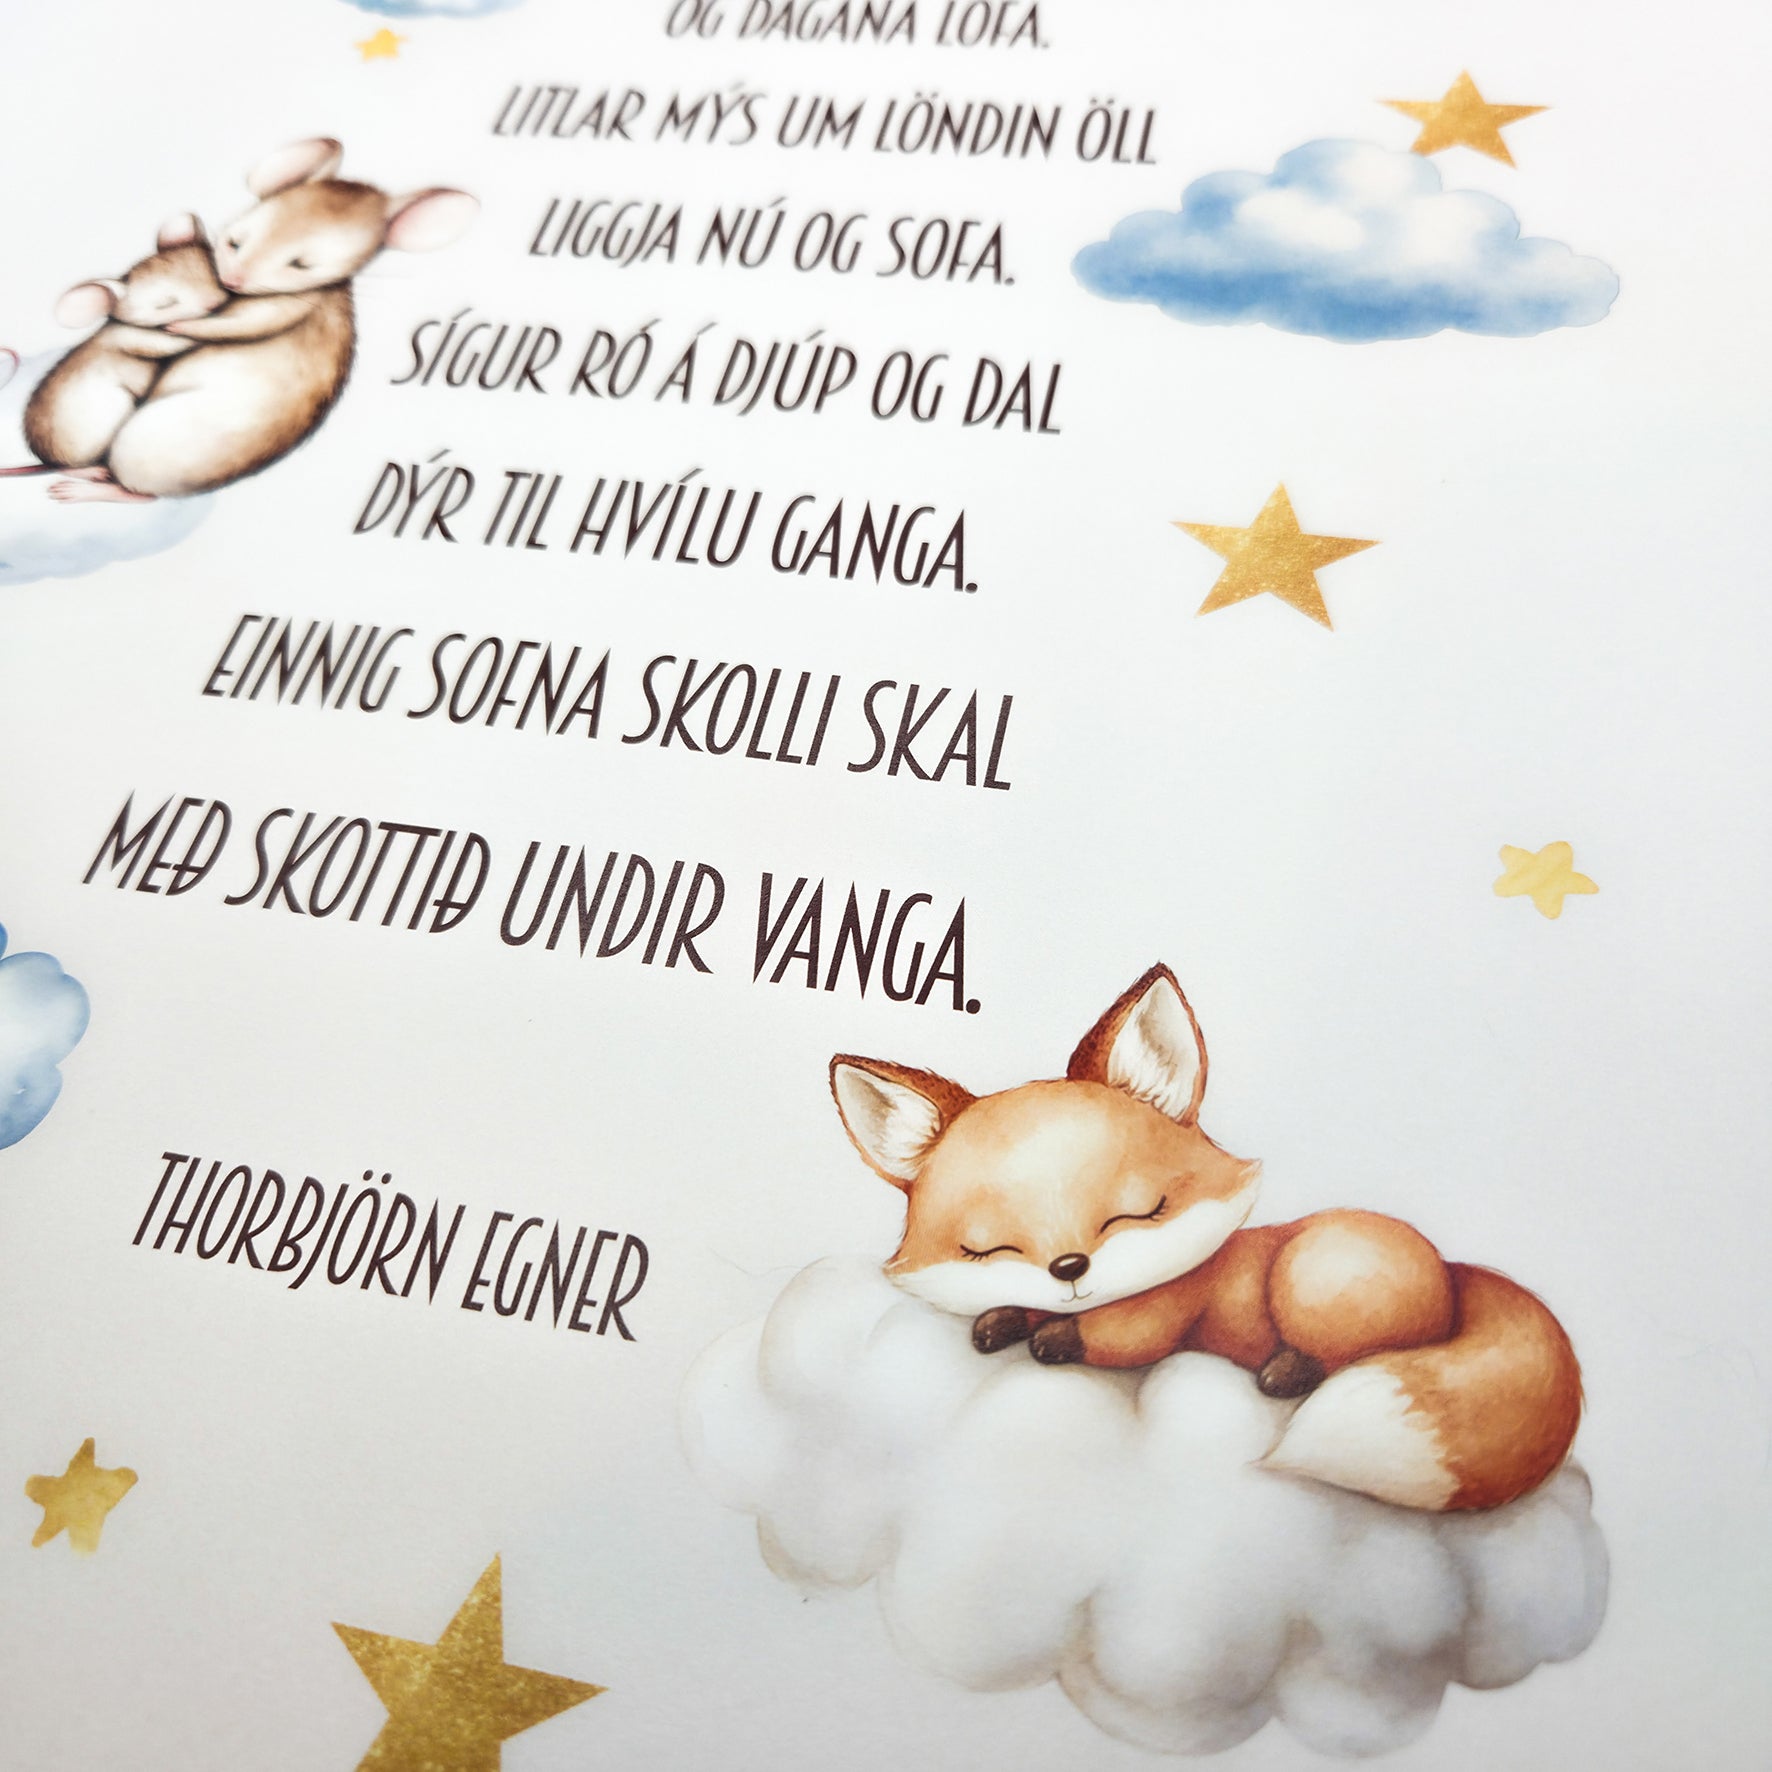 OG DAGANA LOFA.
LITLAR MÝS UM LÖNDIN ÖLL
LIGGJA NÚ OG SOFA.
SÍGUR RÓ Á DJÚP OG DAL
DÝR TIL HVÍLU GANGA.
EINNIG SOFNA SKOLLI SKAL
MEÐ SKOTTIÐ UNDIR VANGA.
THORBJÖRN EGNER